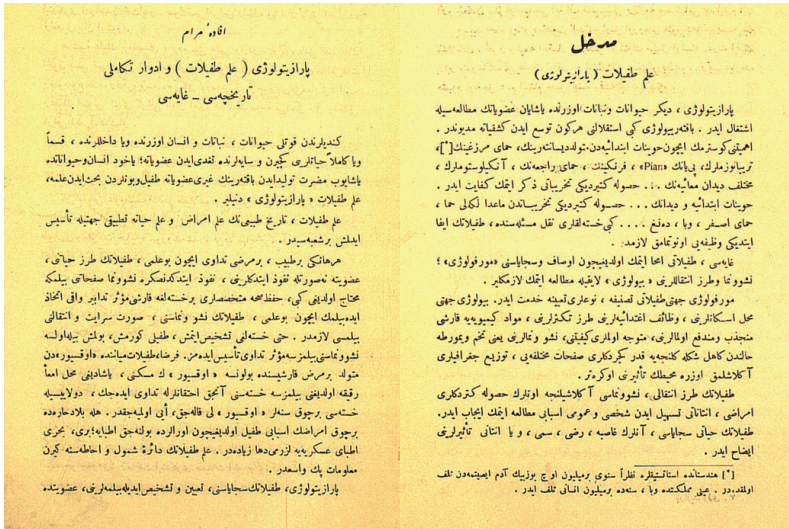 مدخل
علم طفیلات (پارازیتولوژی)
پارازیتولوژی ، دیكر حیوانات ونباتات اوزرنده یاشایان عضویاتك مطالعه‌سیله
اشتغال ایدر . باقته‌ریولوژی كبی استقلالنی هركون توسع ایدن كشفیاته مدیوندر .
اهمیتنی كوسترمك ایچون حوینات ابتدائیه‌دن متولد دیسانته‌رینك، حمای مرزغینك [*]،
تریپانوزمالرك، پی‌یانك «Pian» ، فرنكینك ، حمای راجعه‌نك ، آنكیلوستومارك ،
مختلف دیدان معائیه‌نك ... حصوله كتیردیكی تخریباتی ذكر ایتمك كفایت ایدر .
حوینات ابتدائیه و دیدانك ... حصوله كتیردیكی تخریباتدن ماعدا لكه‌لی حما ،
حمای اصفر ، وبا ، ده‌نغ .... كبی خسته‌لقلری نقل مسئله‌سنده ، طفیلاتك ایفا
ایتدیكی وظیفه‌یی اونوتمامق لازمدر .
غایه‌سی ، طفیلاتی امحا ایتمك اولدیغیچون اوصاف وسجایاسنی «مورفولوژی» ؛
نشوونما وطرز انتقاللرینی «بیولوژی» لایقیله مطالعه ایتمك لازمكلیر .
مورفولوژی جهتی طفیلاتی تصنیفه ، نوعلری تعیینه خدمت ایدر. بیولوژی جهتی
محل اسكانلرینی ، وظائف اغتدائیه‌لرینی طرز تكثرلرینی ، مواد كیمیویه‌یه قارشی
منجذب ومندفع اولمالرینی، متوجه اولمه‌لری كیفیتنی، نشو ونمالرینی یعنی تخم ویمورطه
حالندن كامل شكله كلنجه‌یه قدر كچیردكلری صفحات مختلفه‌یی ، توزیع جغرافیلری
آكلاشلمق اوزره محیطك تأثیرینی اوكره‌تیر .
طفیلاتك طرز انتقالی ، نشوونماسی آكلاشیلنجه اونلرك حصوله كتردكلری
امراضی ، انتاناتی تسهیل ایدن شخصی وعمومی اسبابی مطالعه ایتمك ایجاب ایدر.
طفیلاتك حیاتی سجایاسی ، آنلرك غاصبه ، رضی ، سمی ، و یا انتانی تأثیرلرینی
ایضاح ایدر .
[*] هندستانده استاتستیقلره نظراً سنوی برملیون اوچ یوزبیك آدم ایصیتمه‌دن تلف
اولمقده‌در . عینی مملكتنده وبا ، سنه‌ده برملیون انسانی تلف ایدر .
افادهٔ مرام
پارازیتولوژی (علم طفیلات) و ادوار تكاملی
تاریخچه‌سی - غایه‌سی
كندیلرندن قوتلی حیوانات ، نباتات و انسان اوزرنده ویا داخللرنده ، قسماً
ویا كاملاً حیاتلری كچیرن و سایه‌لرنده تغدی ایدن عضویاته؛ یاخود انسان وحیواناتده
یاشایوب مضرت تولید ایدن باقته‌رینك غیری عضویاته طفیل وبونلردن بحث ایدن علمه،
علم طفیلات «پارازیتولوژی» دنیلیر .
علم طفیلات ، تاریخ طبیعی‌نك علم امراض و علم حیاته تطبیقی جهتیله تأسیس
ایدلمش برشعبه‌سیدر .
هرهانكی برطبیب ، برمرضی تداوی ایچون بوعلمی ، طفیلاتك طرز حیاتی ،
عضویته نه‌صورتله نفوذ ایتدكلرینی ، نفوذ ایتدكدنصكره نشوونما صفحاتی بیلمكه
محتاج اولدیغی كبی، حفظ صحه متخصصلری برخسته‌لغه قارشی مؤثر تدابیر واقی اتخاذ
ایده‌بیلمك ایچون بوعلمی ، طفیلاتك نشو ونماسنی ، صورت سرایت و انتقالنی
بیلمسی لازمدر . حتی خسته‌لغی تشخیص ایتمش ، طفیلی كورمش، بولمش بیله‌اولسه
نشوونماسنی بیلمزسه مؤثر تداوی تأسیس ایده‌مز. فرضا، طفیلات میاننده «اوقسیور» دن
متولد برمرض قارشیسنده بولونسه «اوقسیور» ك مسكنی ، یاشادیغی محل امعاً
رقیقه اولدیغنی بیلمزسه خسته‌سنی آنجق احتقانلرله تداوی ایده‌جك ، دولاییسیله
خسته‌سی برچوق سنه‌لر «اوقسیور» لی قاله‌جق، أیی اولمیه‌جقدر. هله بلاد حاره‌ده
برچوق امراضك اسبابی طفیل اولدیغیچون اورالرده بونه‌جق اطبایه؛ بری، بحری
اطبای عسكریه‌یه لزومی دها زیاده‌در . علم طفیلاتك دائرهٔ شمول و احاطه‌سنه كیرن
معلومات پك واسعدر .
پارازیتولوژی، طفیلاتك سجایاسنی، تعیین و تشخیص ایدیله‌بیلمه‌لرینی، عضویتنده